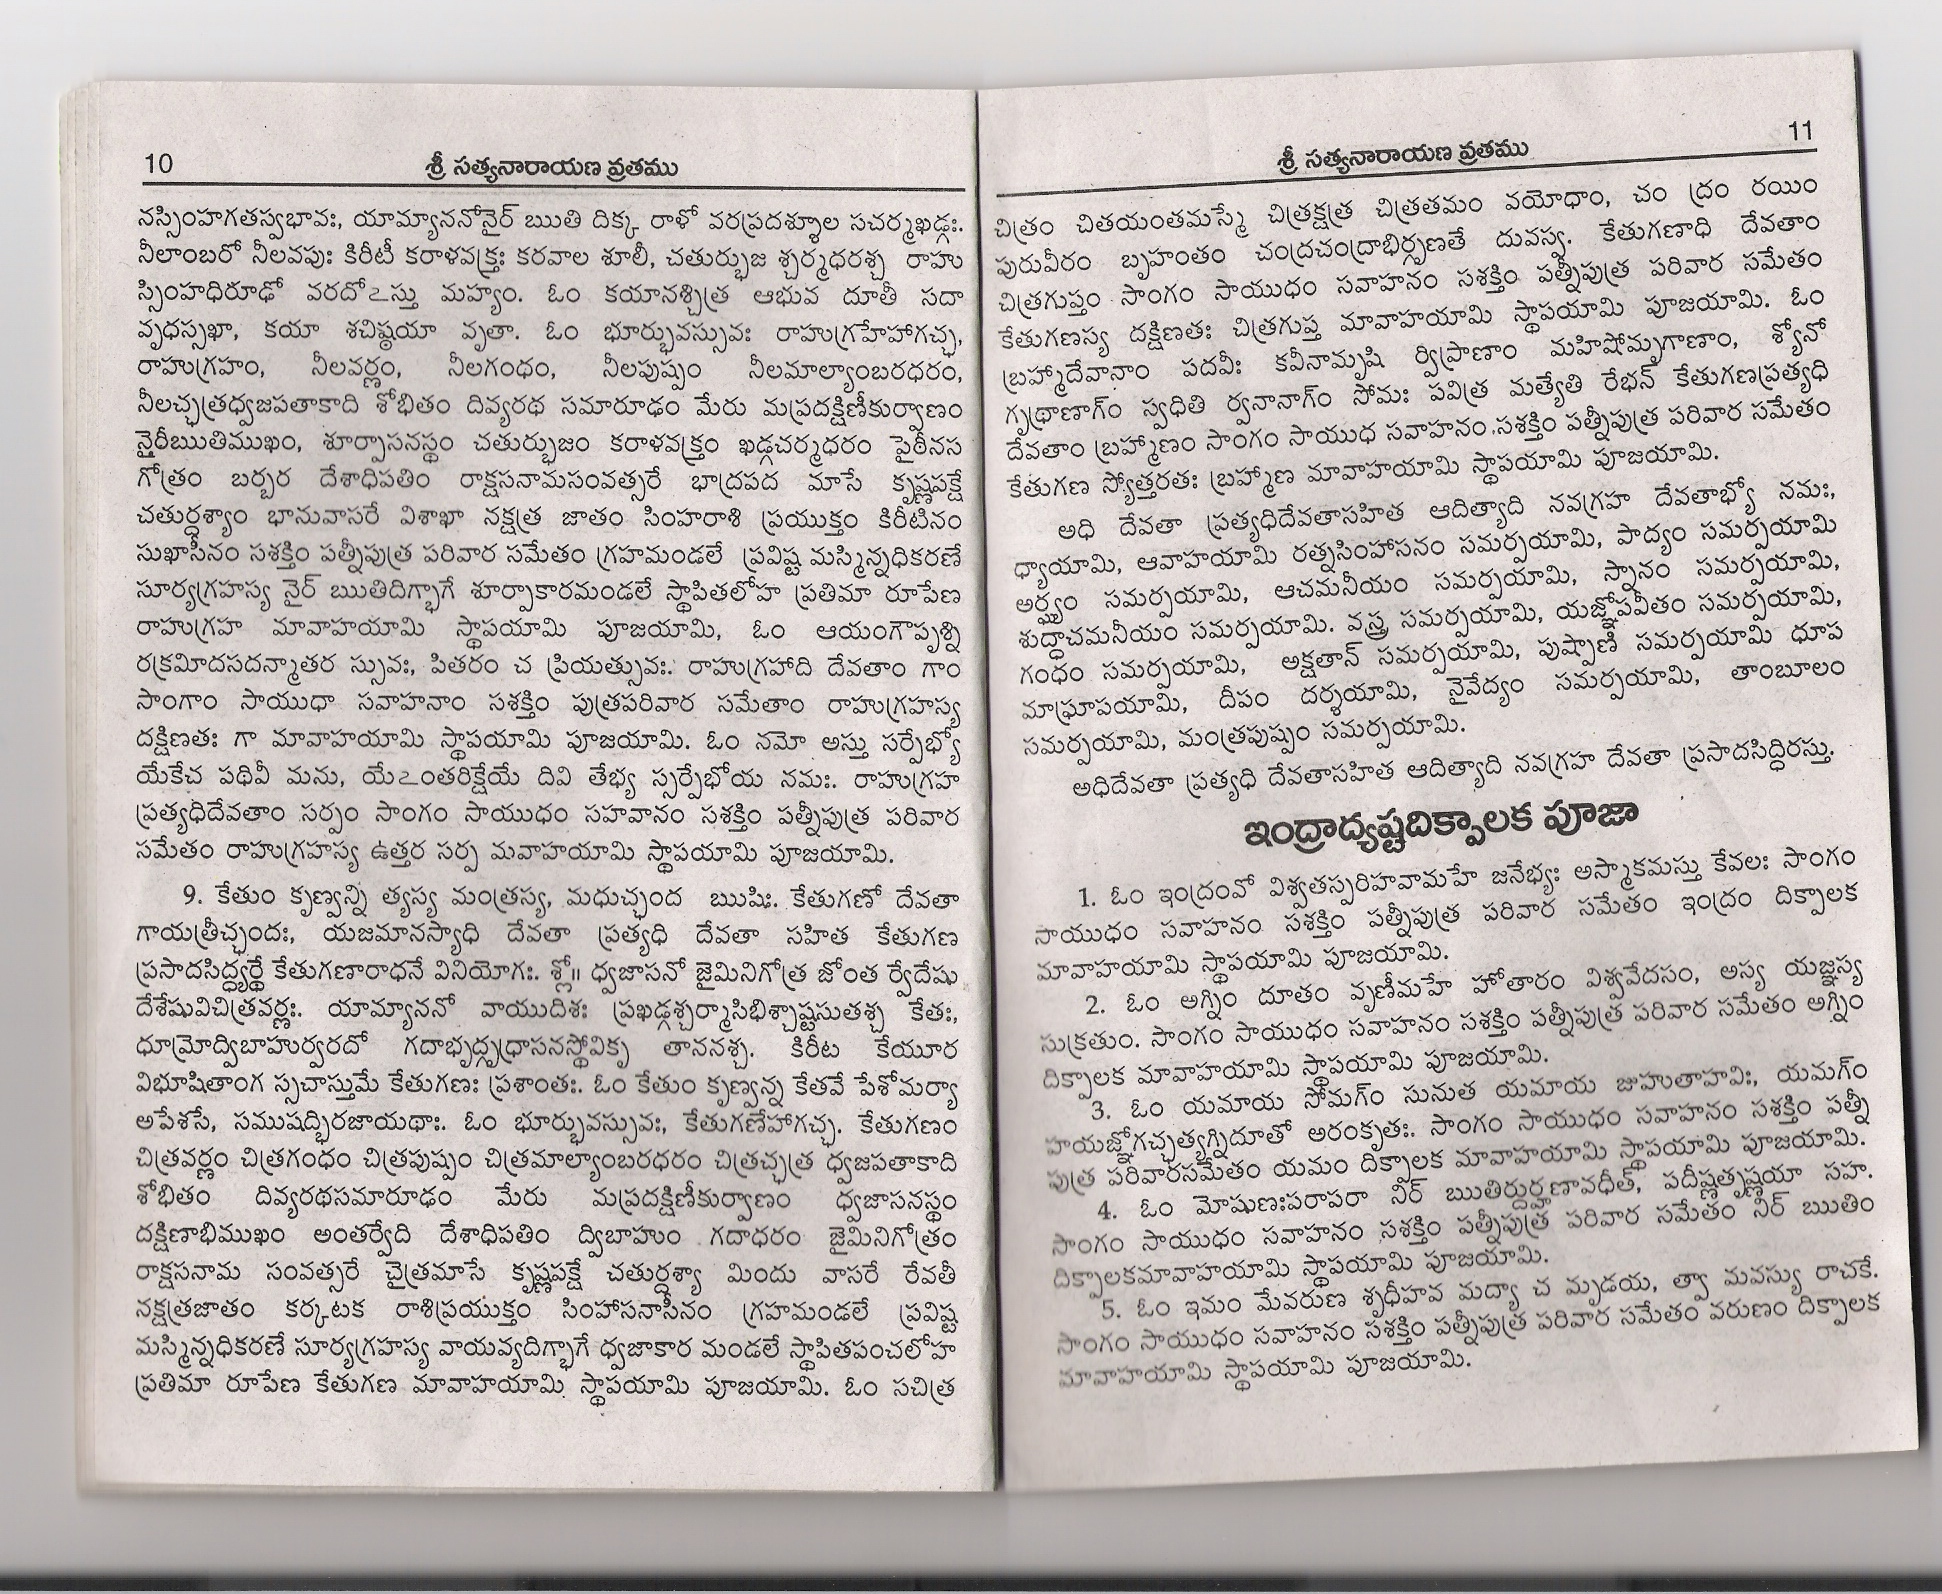 10
శ్రీ సత్యనారాయణ వ్రతము
నస్సింహగతస్వభావః, యామ్యాననోనైర్ ఋతి దిక్క రాళో వరప్రదశ్శూల సచర్మఖడ్గః.
నీలాంబరో నీలవపుః కిరీటీ కరాళవక్త్రః కరవాల శూలీ, చతుర్భుజ శ్చర్మధరశ్చ రాహు
స్సింహధిరూఢో వరదోఽస్తు మహ్యం. ఓం కయానశ్చిత్ర ఆభువ దూతీ సదా
వృధస్సఖా, కయా శచిష్ఠయా వృతా. ఓం భూర్భువస్సువః రాహుగ్రహేహాగచ్ఛ,
రాహుగ్రహం, నీలవర్ణం, నీలగంధం, నీలపుష్పం నీలమాల్యాంబరధరం,
నీలచ్ఛత్రధ్వజపతాకాది శోభితం దివ్యరథ సమారూఢం మేరు మప్రదక్షిణీకుర్వాణం
నైరీఋతిముఖం, శూర్పాసనస్థం చతుర్భుజం కరాళవక్త్రం ఖడ్గచర్మధరం పైఠీనస
గోత్రం బర్బర దేశాధిపతిం రాక్షసనామసంవత్సరే భాద్రపద మాసే కృష్ణపక్షే
చతుర్దశ్యాం భానువాసరే విశాఖా నక్షత్ర జాతం సింహరాశి ప్రయుక్తం కిరీటినం
సుఖాసీనం సశక్తిం పత్నీపుత్ర పరివార సమేతం గ్రహమండలే ప్రవిష్ట మస్మిన్నధికరణే
సూర్యగ్రహస్య నైర్ ఋతిదిగ్భాగే శూర్పాకారమండలే స్థాపితలోహ ప్రతిమా రూపేణ
రాహుగ్రహ మావాహయామి స్థాపయామి పూజయామి, ఓం ఆయంగౌపృశ్ని
రక్రమీదసదన్మాతర స్సువః, పితరం చ ప్రియత్సువః. రాహుగ్రహాది దేవతాం గాం
సాంగాం సాయుధా సవాహనాం సశక్తిం పుత్రపరివార సమేతాం రాహుగ్రహస్య
దక్షిణతః గా మావాహయామి స్థాపయామి పూజయామి. ఓం నమో అస్తు సర్పేభ్యో
యేకేచ పథివీ మను, యేఽంతరిక్షేయే దివి తేభ్య స్సర్పేభోయ నమః. రాహుగ్రహ
ప్రత్యధిదేవతాం సర్పం సాంగం సాయుధం సహవానం సశక్తిం పత్నీపుత్ర పరివార
సమేతం రాహుగ్రహస్య ఉత్తర సర్ప మవాహయామి స్థాపయామి పూజయామి.
9. కేతుం కృణ్వన్ని త్యస్య మంత్రస్య, మధుచ్ఛంద ఋషిః. కేతుగణో దేవతా
గాయత్రీచ్ఛందః, యజమానస్యాధి దేవతా ప్రత్యధి దేవతా సహిత కేతుగణ
ప్రసాదసిద్ధ్యర్థే కేతుగణారాధనే వినియోగః. శ్లో॥ ధ్వజాసనో జైమినిగోత్ర జోంత ర్వేదేషు
దేశేషువిచిత్రవర్ణః. యామ్యాననో వాయుదిశః ప్రఖడ్గశ్చర్మాసిభిశ్చాష్టసుతశ్చ కేతః,
ధూమ్రోద్విబాహుర్వరదో గదాభృద్గృధ్రాసనస్థోవికృ తాననశ్చ. కిరీట కేయూర
విభూషితాంగ స్సచాస్తుమే కేతుగణః ప్రశాంతః. ఓం కేతుం కృణ్వన్న కేతవే పేశోమర్యా
అపేశసే, సముషద్భిరజాయథాః. ఓం భూర్భువస్సువః, కేతుగణేహాగచ్ఛ. కేతుగణం
చిత్రవర్ణం చిత్రగంధం చిత్రపుష్పం చిత్రమాల్యాంబరధరం చిత్రచ్ఛత్ర ధ్వజపతాకాది
శోభితం దివ్యరథసమారూఢం మేరు మప్రదక్షిణీకుర్వాణం ధ్వజాసనస్థం
దక్షిణాభిముఖం అంతర్వేది దేశాధిపతిం ద్విబాహుం గదాధరం జైమినిగోత్రం
రాక్షసనామ సంవత్సరే చైత్రమాసే కృష్ణపక్షే చతుర్దశ్యా మిందు వాసరే రేవతీ
నక్షత్రజాతం కర్కటక రాశిప్రయుక్తం సింహాసనాసీనం గ్రహమండలే ప్రవిష్ట
మస్మిన్నధికరణే సూర్యగ్రహస్య వాయవ్యదిగ్భాగే ధ్వజాకార మండలే స్థాపితపంచలోహ
ప్రతిమా రూపేణ కేతుగణ మావాహయామి స్థాపయామి పూజయామి. ఓం సచిత్ర
11
శ్రీ సత్యనారాయణ వ్రతము
చిత్రం చితయంతమస్మే చిత్రక్షత్ర చిత్రతమం వయోధాం, చం ద్రం రయిం
పురువీరం బృహంతం చంద్రచంద్రాభిర్గృణతే దువస్వ. కేతుగణాధి దేవతాం
చిత్రగుప్తం సాంగం సాయుధం సవాహనం సశక్తిం పత్నీపుత్ర పరివార సమేతం
కేతుగణస్య దక్షిణతః చిత్రగుప్త మావాహయామి స్థాపయామి పూజయామి. ఓం
బ్రహ్మాదేవానాం పదవీః కవీనామృషి ర్విప్రాణాం మహిషోమృగాణాం, శ్యోనో
గృధ్రాణాగ్ం స్వధితి ర్వనానాగ్ం సోమః పవిత్ర మత్యేతి రేభన్ కేతుగణప్రత్యధి
దేవతాం బ్రహ్మాణం సాంగం సాయుధ సవాహనం సశక్తిం పత్నీపుత్ర పరివార సమేతం
కేతుగణ స్యోత్తరతః బ్రహ్మాణ మావాహయామి స్థాపయామి పూజయామి.
అధి దేవతా ప్రత్యధిదేవతాసహిత ఆదిత్యాది నవగ్రహ దేవతాభ్యో నమః,
ధ్యాయామి, ఆవాహయామి రత్నసింహాసనం సమర్పయామి, పాద్యం సమర్పయామి
అర్ఘ్యం సమర్పయామి, ఆచమనీయం సమర్పయామి, స్నానం సమర్పయామి,
శుద్ధాచమనీయం సమర్పయామి. వస్త్ర సమర్పయామి, యజ్ఞోపవీతం సమర్పయామి,
గంధం సమర్పయామి, అక్షతాన్ సమర్పయామి, పుష్పాణి సమర్పయామి ధూప
మాఘ్రాపయామి, దీపం దర్శయామి, నైవేద్యం సమర్పయామి, తాంబూలం
సమర్పయామి, మంత్రపుష్పం సమర్పయామి.
అధిదేవతా ప్రత్యధి దేవతాసహిత ఆదిత్యాది నవగ్రహ దేవతా ప్రసాదసిద్ధిరస్తు.
ఇంద్రాద్యష్టదిక్పాలక పూజా
1. ఓం ఇంద్రంవో విశ్వతస్పరిహవామహే జనేభ్యః అస్మాకమస్తు కేవలః సాంగం
సాయుధం సవాహనం సశక్తిం పత్నీపుత్ర పరివార సమేతం ఇంద్రం దిక్పాలక
మావాహయామి స్థాపయామి పూజయామి.
2. ఓం అగ్నిం దూతం వృణీమహే హోతారం విశ్వవేదసం, అస్య యజ్ఞస్య
సుక్రతుం. సాంగం సాయుధం సవాహనం సశక్తిం పత్నీపుత్ర పరివార సమేతం అగ్నిం
దిక్పాలక మావాహయామి స్థాపయామి పూజయామి.
3. ఓం యమాయ సోమగ్ం సునుత యమాయ జుహుతాహవిః, యమగ్ం
హయజ్ఞోగచ్ఛత్యగ్నిదూతో అరంకృతః. సాంగం సాయుధం సవాహనం సశక్తిం పత్నీ
పుత్ర పరివారసమేతం యమం దిక్పాలక మావాహయామి స్థాపయామి పూజయామి.
4. ఓం మోషుణఃపరాపరా నిర్ ఋతిర్దుర్హణావధీత్, పదీష్టతృష్ణయా సహ.
సాంగం సాయుధం సవాహనం సశక్తిం పత్నీపుత్ర పరివార సమేతం నిర్ ఋతిం
దిక్పాలకమావాహయామి స్థాపయామి పూజయామి.
5. ఓం ఇమం మేవరుణ శృధీహవ మద్యా చ మృడయ, త్వా మవస్యు రాచకే.
సాంగం సాయుధం సవాహనం సశక్తిం పత్నీపుత్ర పరివార సమేతం వరుణం దిక్పాలక
మావాహయామి స్థాపయామి పూజయామి.